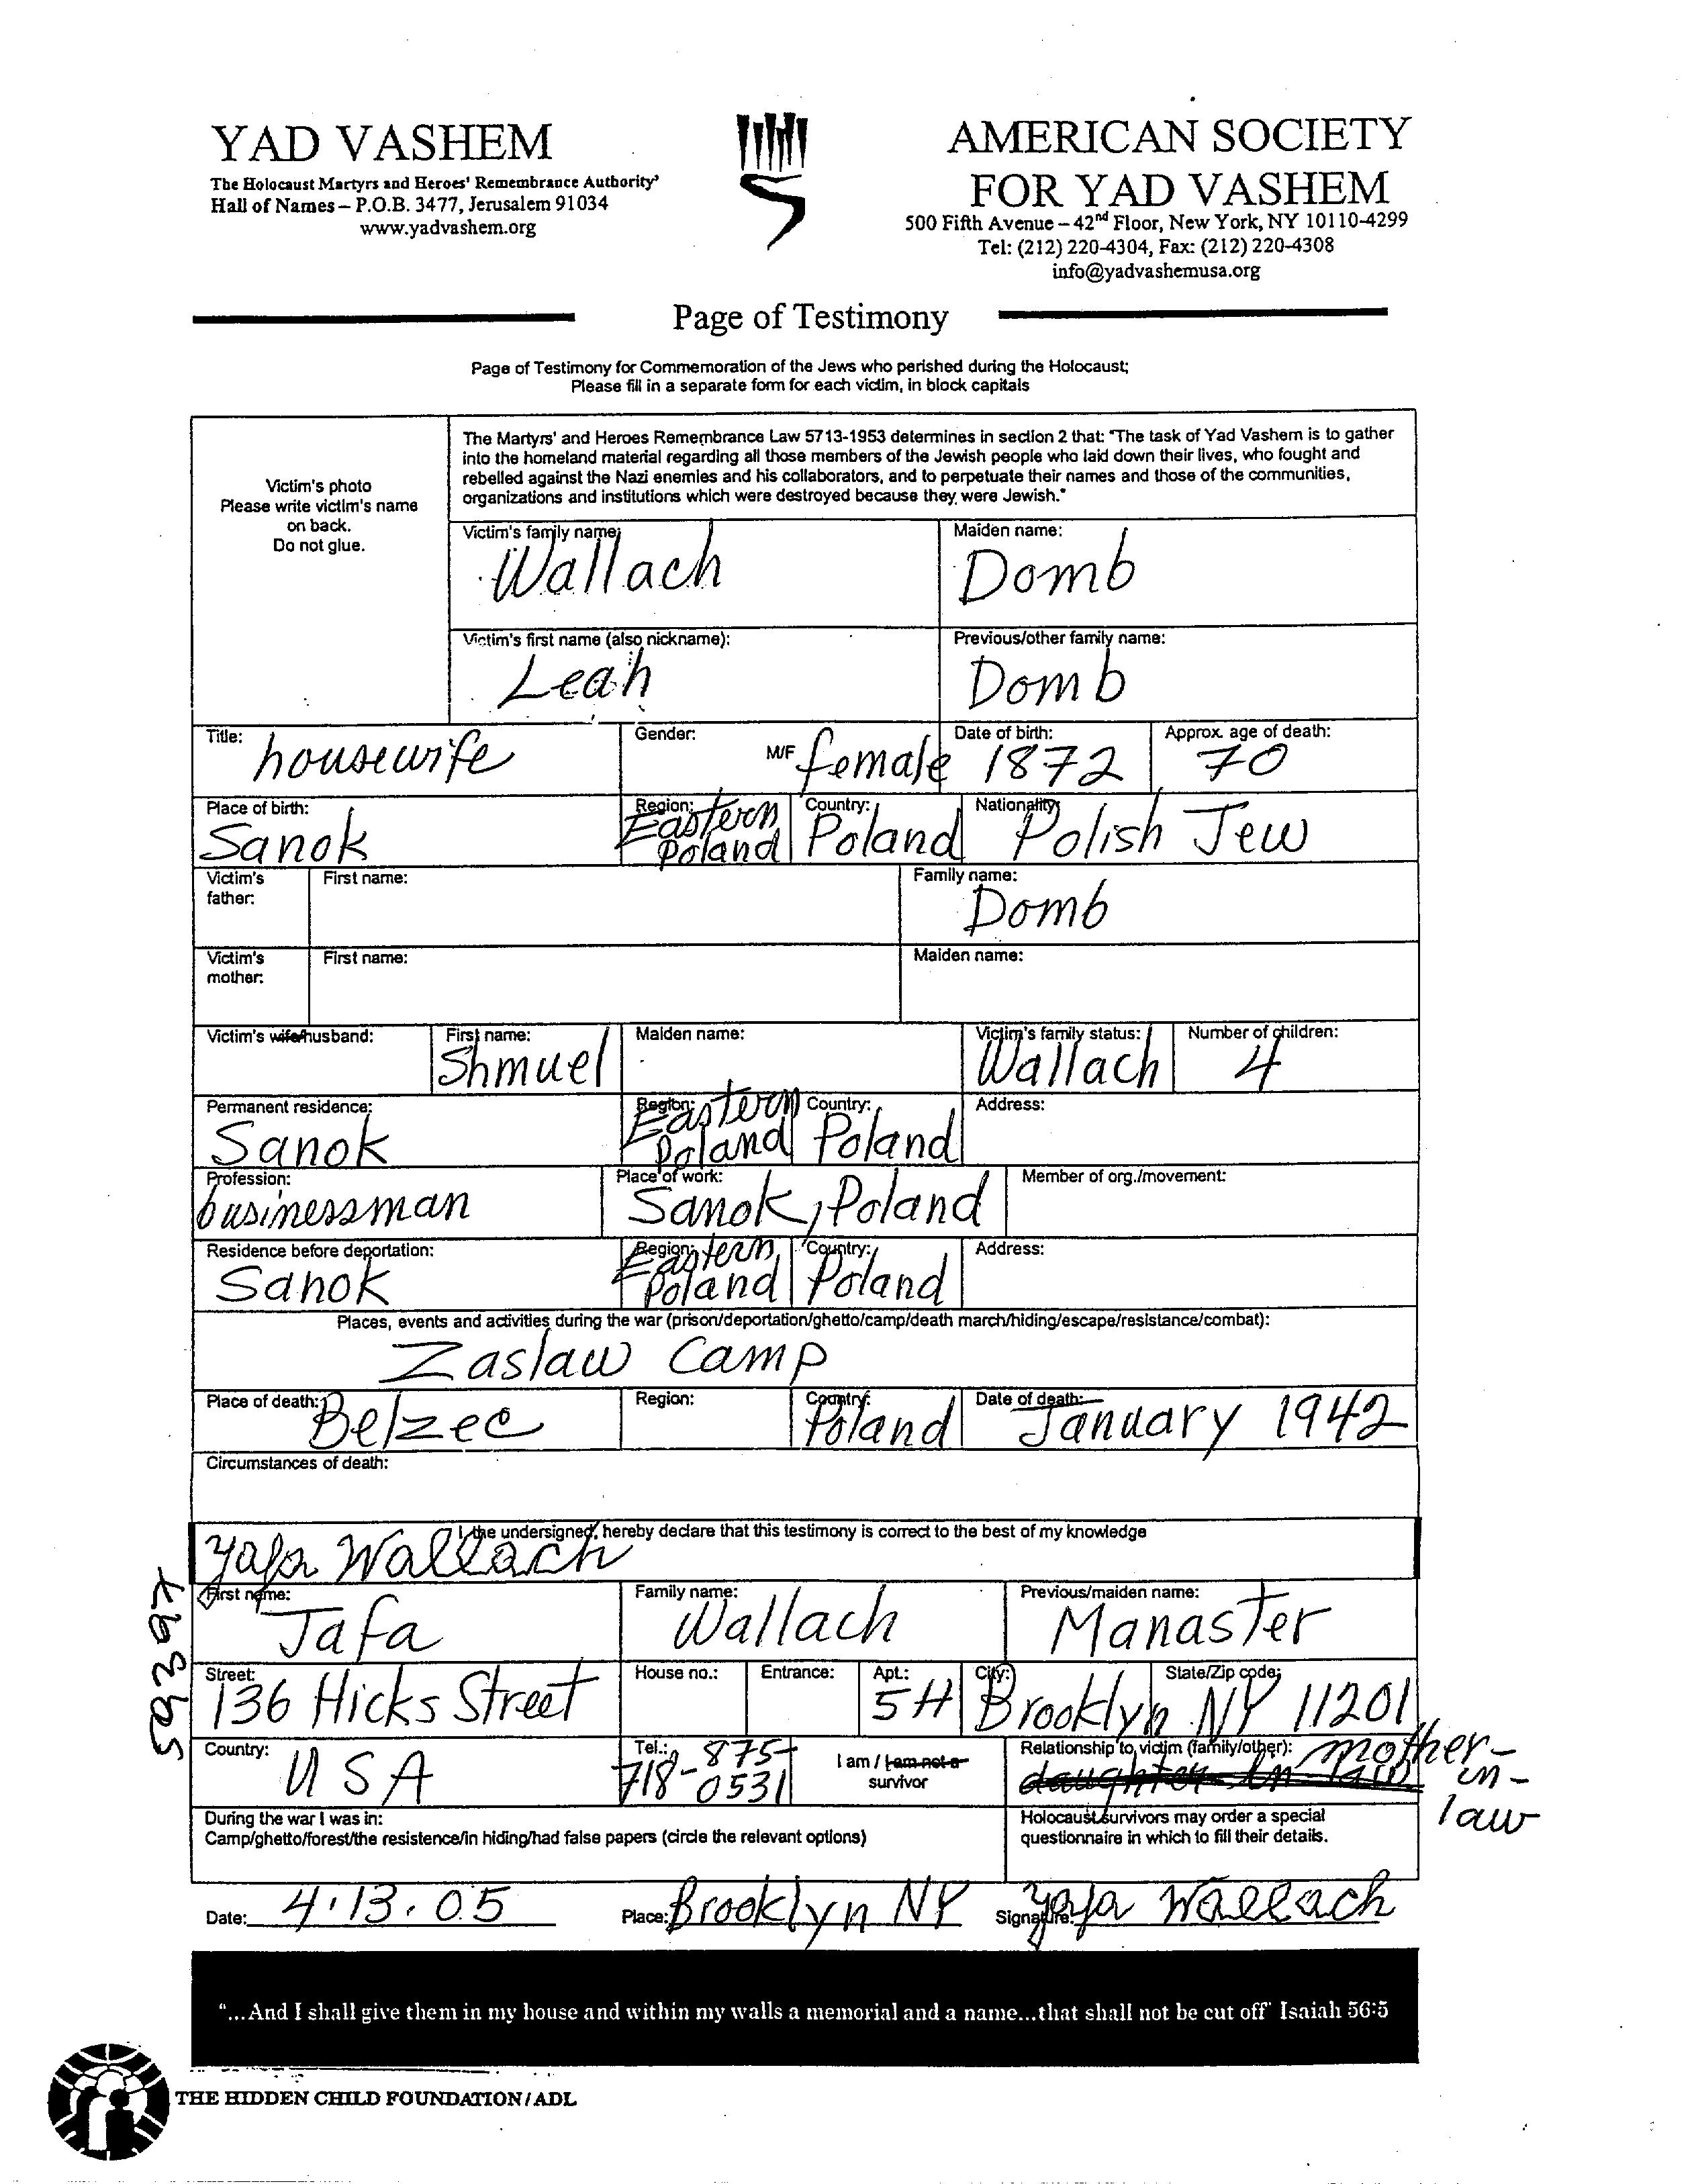 YAD VASHEM
The Holocaust Martyrs and Heroes' Remembrance Authority'
Hall of Names – P.O.B. 3477, Jerusalem 91034
www.yadvashem.org
AMERICAN SOCIETY
FOR YAD VASHEM
500 Fifth Avenue – 42nd Floor, New York, NY 10110-4299
Tel: (212) 220-4304, Fax: (212) 220-4308
info@yadvashemusa.org
Page of Testimony
Page of Testimony for Commemoration of the Jews who perished during the Holocaust;
Please fill in a separate form for each victim, in block capitals
Victim's photo
Please write victim's name
on back.
Do not glue.
The Martyrs' and Heroes Remembrance Law 5713-1953 determines in section 2 that: "The task of Yad Vashem is to gather
into the homeland material regarding all those members of the Jewish people who laid down their lives, who fought and
rebelled against the Nazi enemies and his collaborators, and to perpetuate their names and those of the communities,
organizations and institutions which were destroyed because they were Jewish."
Victim's family name: Maiden name:
Wallach Domb
Victim's first name (also nickname): Previous/other family name:
Leah Domb
Title: Gender: Date of birth: Approx. age of death:
housewife M/F female 1872 70
Place of birth: Region: Country: Nationality:
Sanok Eastern Poland Poland Polish Jew
Victim's father: First name: Family name:
Domb
Victim's mother: First name: Maiden name:
Victim's wife/husband: First name: Maiden name: Victim's family status: Number of children:
Shmuel Wallach 4
Permanent residence: Region: Country: Address:
Sanok Eastern Poland Poland
Profession: Place of work: Member of org./movement:
businessman Sanok, Poland
Residence before deportation: Region: Country: Address:
Sanok Eastern Poland Poland
Places, events and activities during the war (prison/deportation/ghetto/camp/death march/hiding/escape/resistance/combat):
Zaslaw Camp
Place of death: Region: Country: Date of death:
Belzec Poland January 1942
Circumstances of death:
I, the undersigned, hereby declare that this testimony is correct to the best of my knowledge
Yafa Wallach
First name: Family name: Previous/maiden name:
Jafa Wallach Manaster
Street: House no.: Entrance: Apt.: City: State/Zip code:
136 Hicks Street 5H Brooklyn NY 11201
Country: Tel.: I am / I am not a survivor Relationship to victim (family/other):
USA 718-875-0531 daughter in law mother-in-law
During the war I was in:
Camp/ghetto/forest/the resistence/in hiding/had false papers (circle the relevant options)
Holocaust survivors may order a special
questionnaire in which to fill their details.
Date: 4.13.05 Place: Brooklyn NY Signature: Yafa Wallach
"...And I shall give them in my house and within my walls a memorial and a name...that shall not be cut off" Isaiah 56:5
THE HIDDEN CHILD FOUNDATION / ADL